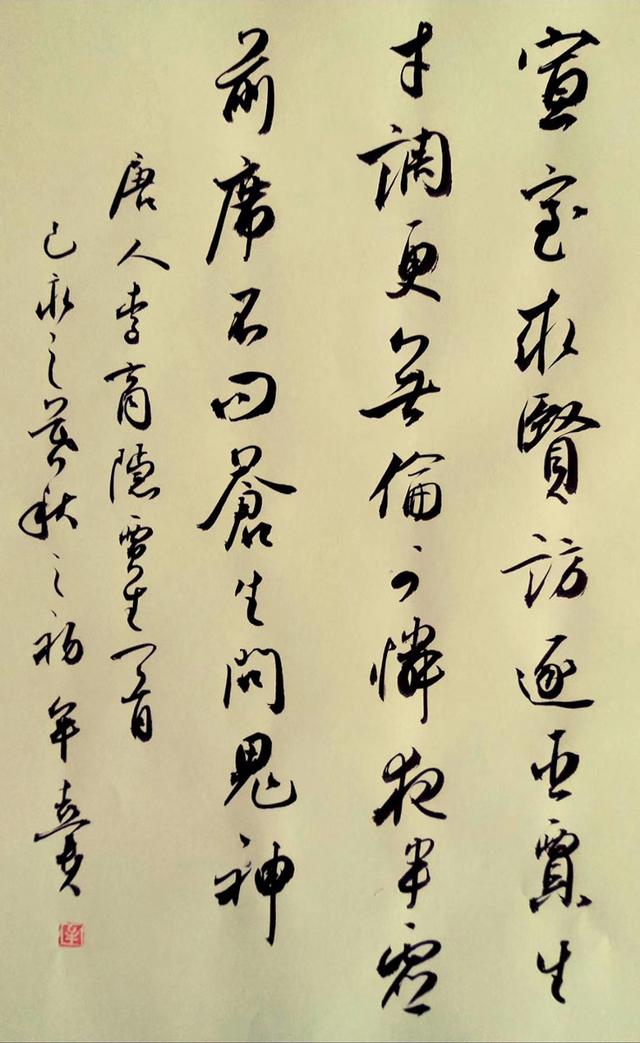 宣室求賢訪逐臣賈生
才調更無倫可憐夜半虛
前席不問蒼生問鬼神
唐人李商隱賈生一首
己亥之暮秋之初